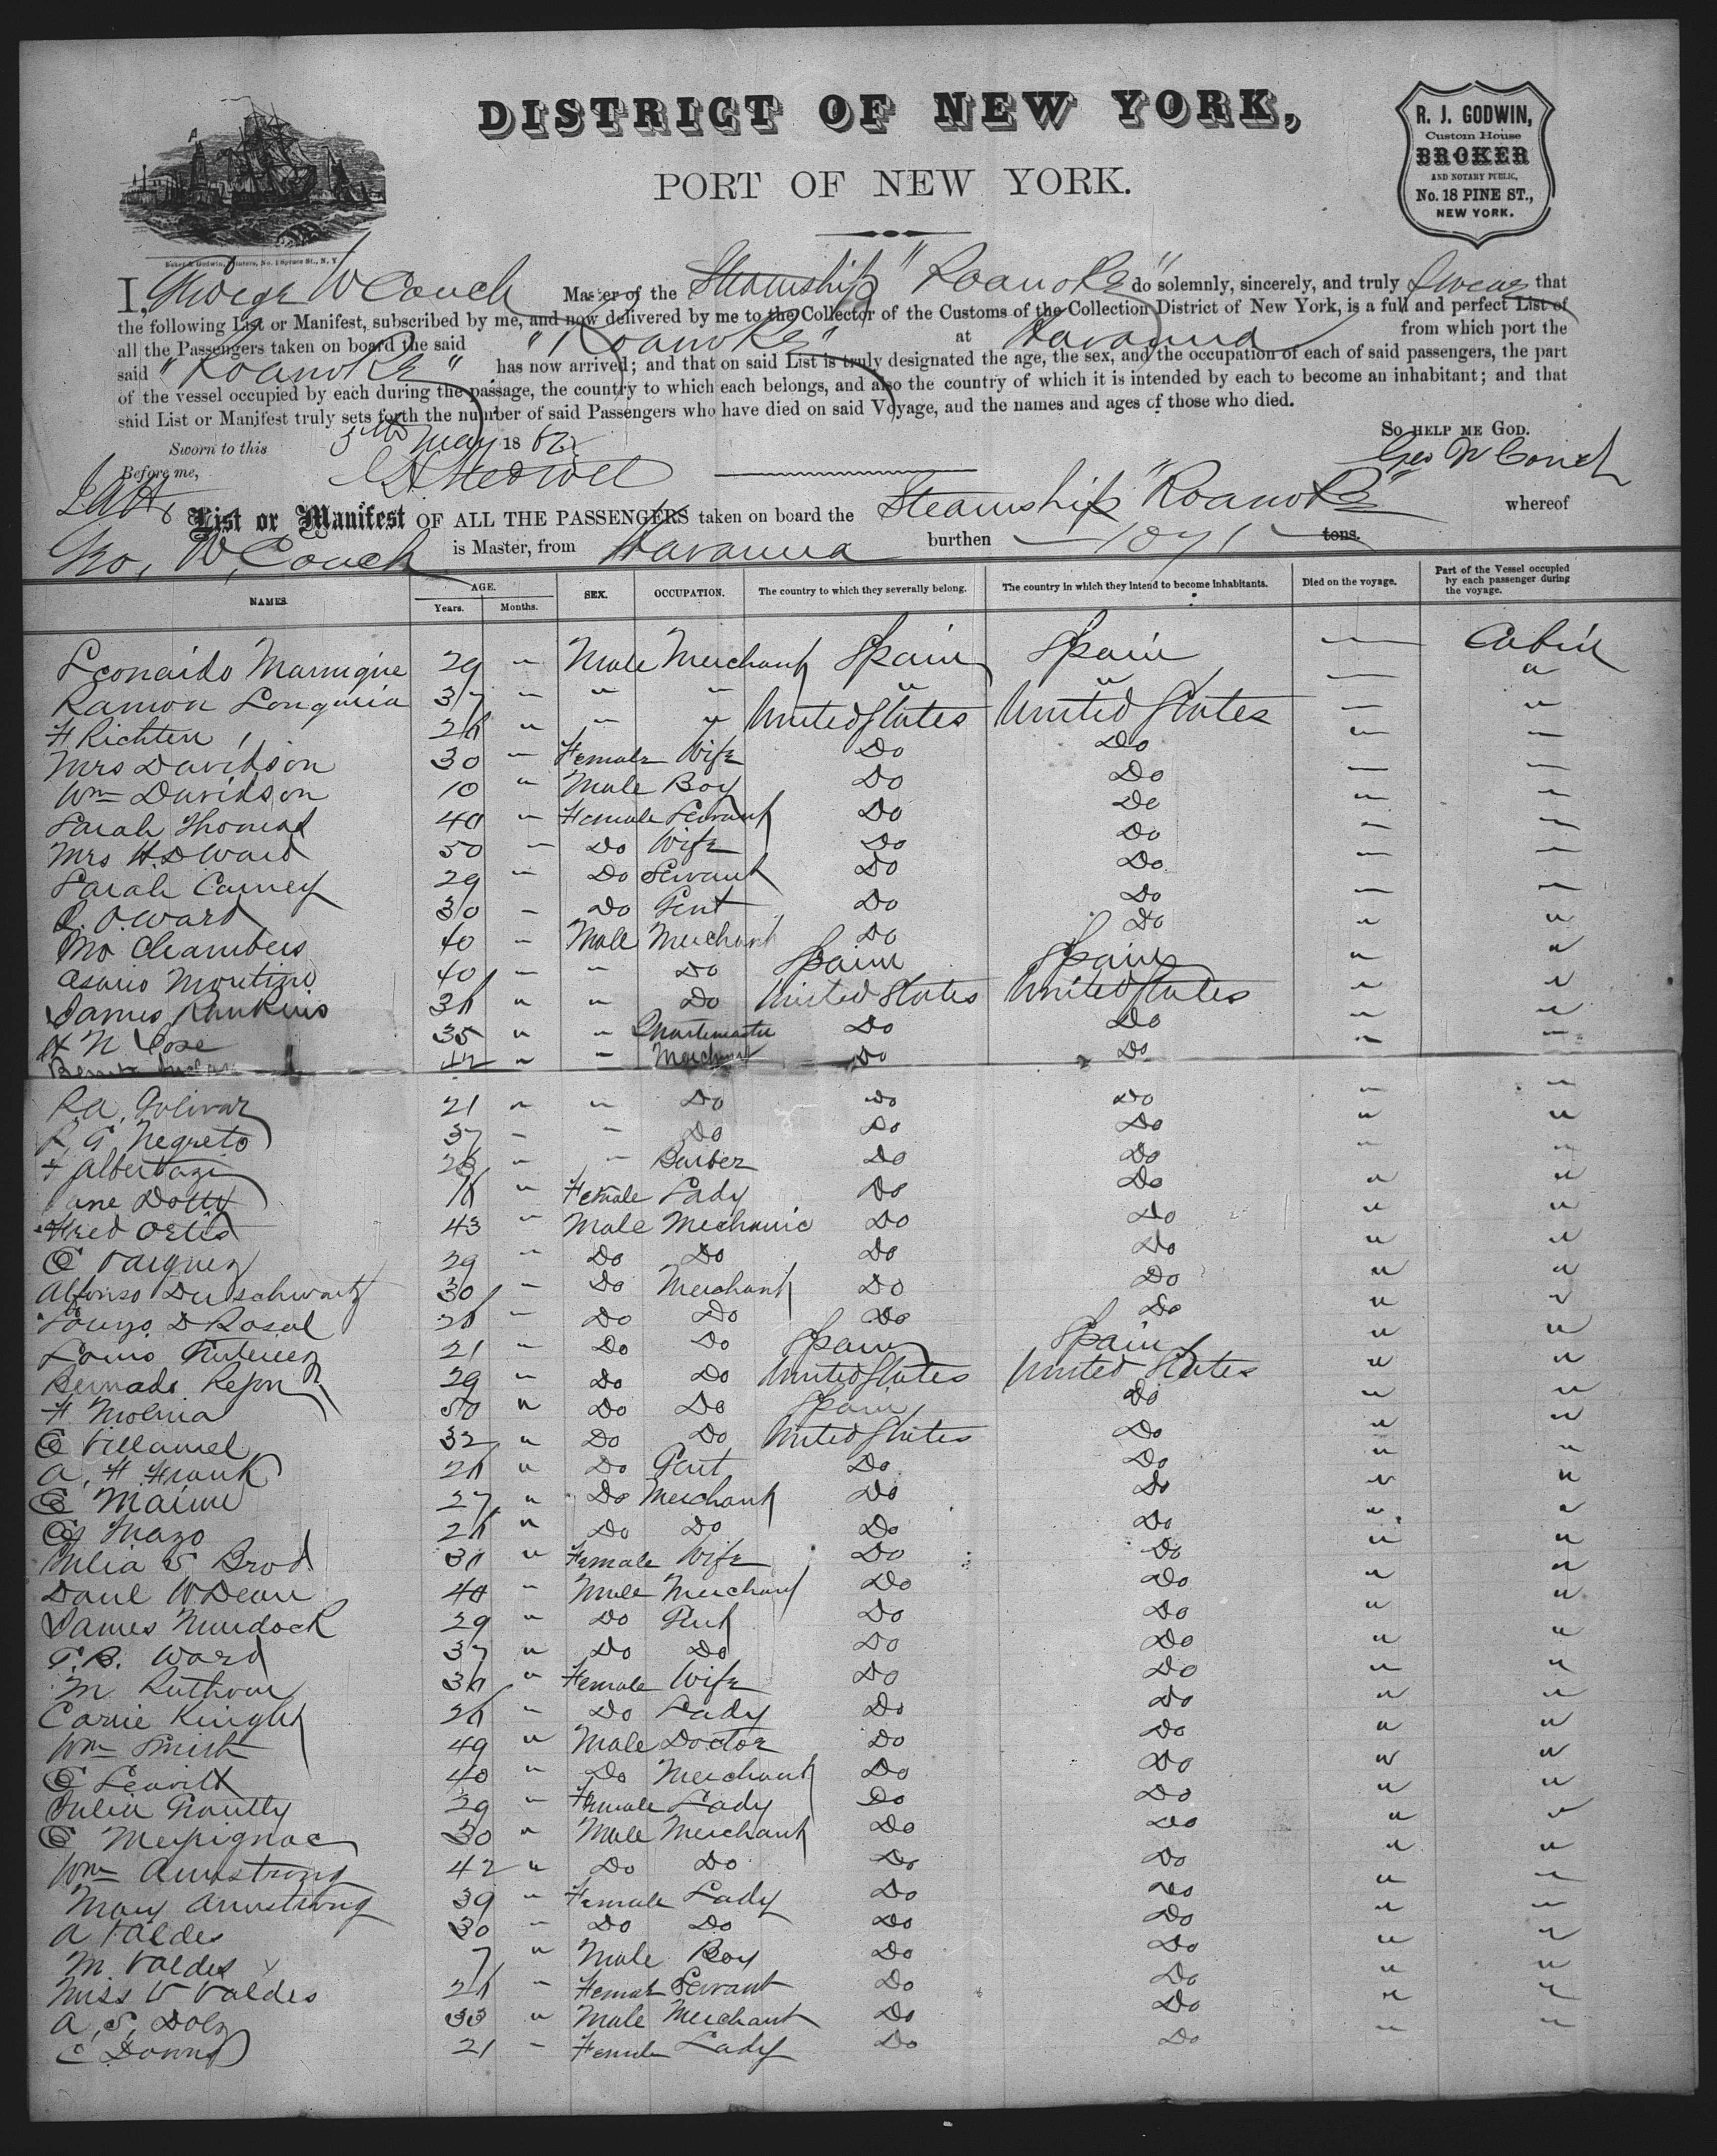 DISTRICT OF NEW YORK,
PORT OF NEW YORK.
R. J. GODWIN,
Custom House
BROKER
AND NOTARY PUBLIC,
No. 18 PINE ST.,
NEW YORK.
Baker & Godwin, Printers, No. 1 Spruce St., N. Y.
I, George W Couch Master of the Steamship "Roanoke" do solemnly, sincerely, and truly Swear that
the following List or Manifest, subscribed by me, and now delivered by me to the Collector of the Customs of the Collection District of New York, is a full and perfect List of
all the Passengers taken on board the said "Roanoke" at Havanna from which port the
said "Roanoke" has now arrived; and that on said List is truly designated the age, the sex, and the occupation of each of said passengers, the part
of the vessel occupied by each during the passage, the country to which each belongs, and also the country of which it is intended by each to become an inhabitant; and that
said List or Manifest truly sets forth the number of said Passengers who have died on said Voyage, and the names and ages of those who died.
SO HELP ME GOD.
Sworn to this 5th May 186
Geo W Couch
Before me,
List or Manifest OF ALL THE PASSENGERS taken on board the Steamship "Roanoke" whereof
Geo. W. Couch is Master, from Havanna burthen 1071 tons.
NAMES. AGE. Years. Months. SEX. OCCUPATION. The country to which they severally belong. The country in which they intend to become inhabitants. Died on the voyage. Part of the Vessel occupied by each passenger during the voyage.
Leonardo 29 " Male Merchant Spain Spain — Cabin
Ramon Longuria 37 " " " " " — "
H Richten " " " United States United States — "
Mrs Davidson 30 " Female Wife Do Do — "
Wm Davidson 10 " Male Boy Do Do — "
Sarah Thomas 40 " Female Servant Do Do " "
Mrs H. D Ward 50 " Do Wife Do Do — "
Sarah Carney 29 " Do Servant Do Do — "
O. Ward 30 " Do Gent Do Do — "
Chambers 40 " Male Merchant Do Do " "
40 " " Do Spain Spain " "
James Rankins " " Do United States United States " "
H N 35 " " Quartermaster Do Do " "
42 " " Merchant Do Do " "
R.A. Bolivar 21 " " Do Do Do " "
G. Negreto 37 " " Do Do Do " "
Albertazi " " Barber Do Do " "
Jane Dotty " Female Lady Do Do " "
Fred Ortis 43 " Male Mechanic Do Do " "
C Varquez 29 " Do Do Do Do " "
Alfonso 30 " Do Merchant Do Do " "
D Rosal " Do Do Do Do " "
21 " Do Do Spain Spain " "
Bernado Rejon 29 " Do Do United States United States " "
F Molina 50 " Do Do Spain Do " "
C Villamel 32 " Do Do United States Do " "
A. H. Frank " Do Gent Do Do " "
C 27 " Do Merchant Do Do " "
Mazo " Do Do Do Do " "
Julia S. Brod " Female Wife Do Do " "
Danl W Dean " Male Merchant Do Do " "
James Murdock 29 " Do Gent Do Do " "
T. B. Ward 37 " Do Do Do Do " "
M " Female Wife Do Do " "
Carrie Knight " Do Lady Do Do " "
Wm Smith 49 " Male Doctor Do Do " "
C Leavitt 40 " Do Merchant Do Do " "
Julia 29 " Female Lady Do Do " "
C Merpignac 30 " Male Merchant Do Do " "
Wm Armstrong 42 " Do Do Do Do " "
Mary Armstrong 39 " Female Lady Do Do " "
A Valdes 30 " Do Do Do Do " "
M. Valdes 7 " Male Boy Do Do " "
Miss V Valdes " Female Servant Do Do " "
A. S. Dolz 33 " Male Merchant Do Do " "
C Downs 21 " Female Lady Do Do " "